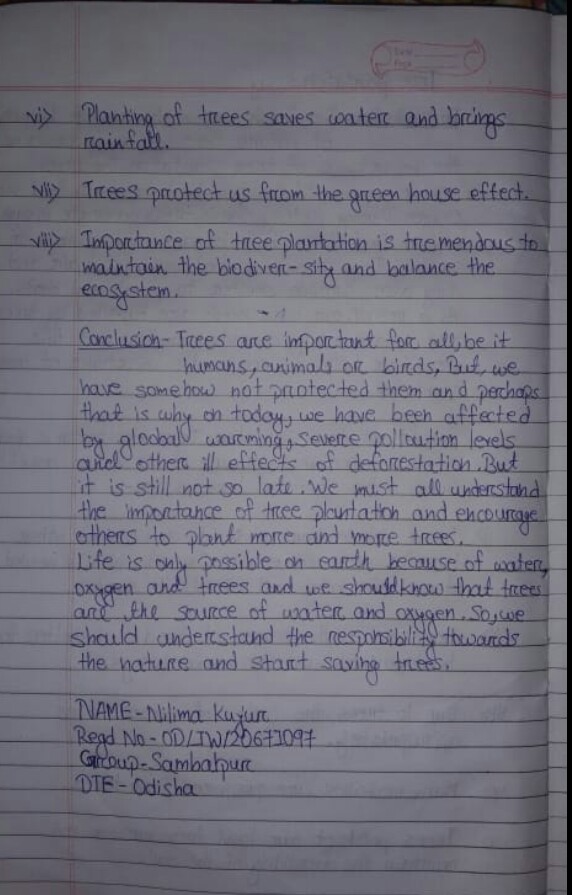 vi> Planting of trees saves water and brings
rainfall.
vii> Trees protect us from the green house effect.
viii> Importance of tree plantation is tremendous to
maintain the biodiver-sity and balance the
ecosystem.
Conclusion- Trees are important for all, be it
humans, animals or birds, But, we
have somehow not protected them and perhaps
that is why on today, we have been affected
by gloobal warming, severe polloution levels
and other ill effects of deforestation. But
it is still not so late. We must all understand
the importance of tree plantation and encourage
others to plant more and more trees.
Life is only possible on earth because of water,
oxygen and trees and we should know that trees
are the source of water and oxygen. So, we
should understand the responsibility towards
the nature and start saving trees.
NAME - Nilima Kujur
Regd No - OD/JW/20671097
Group - Sambalpur
DTE - Odisha